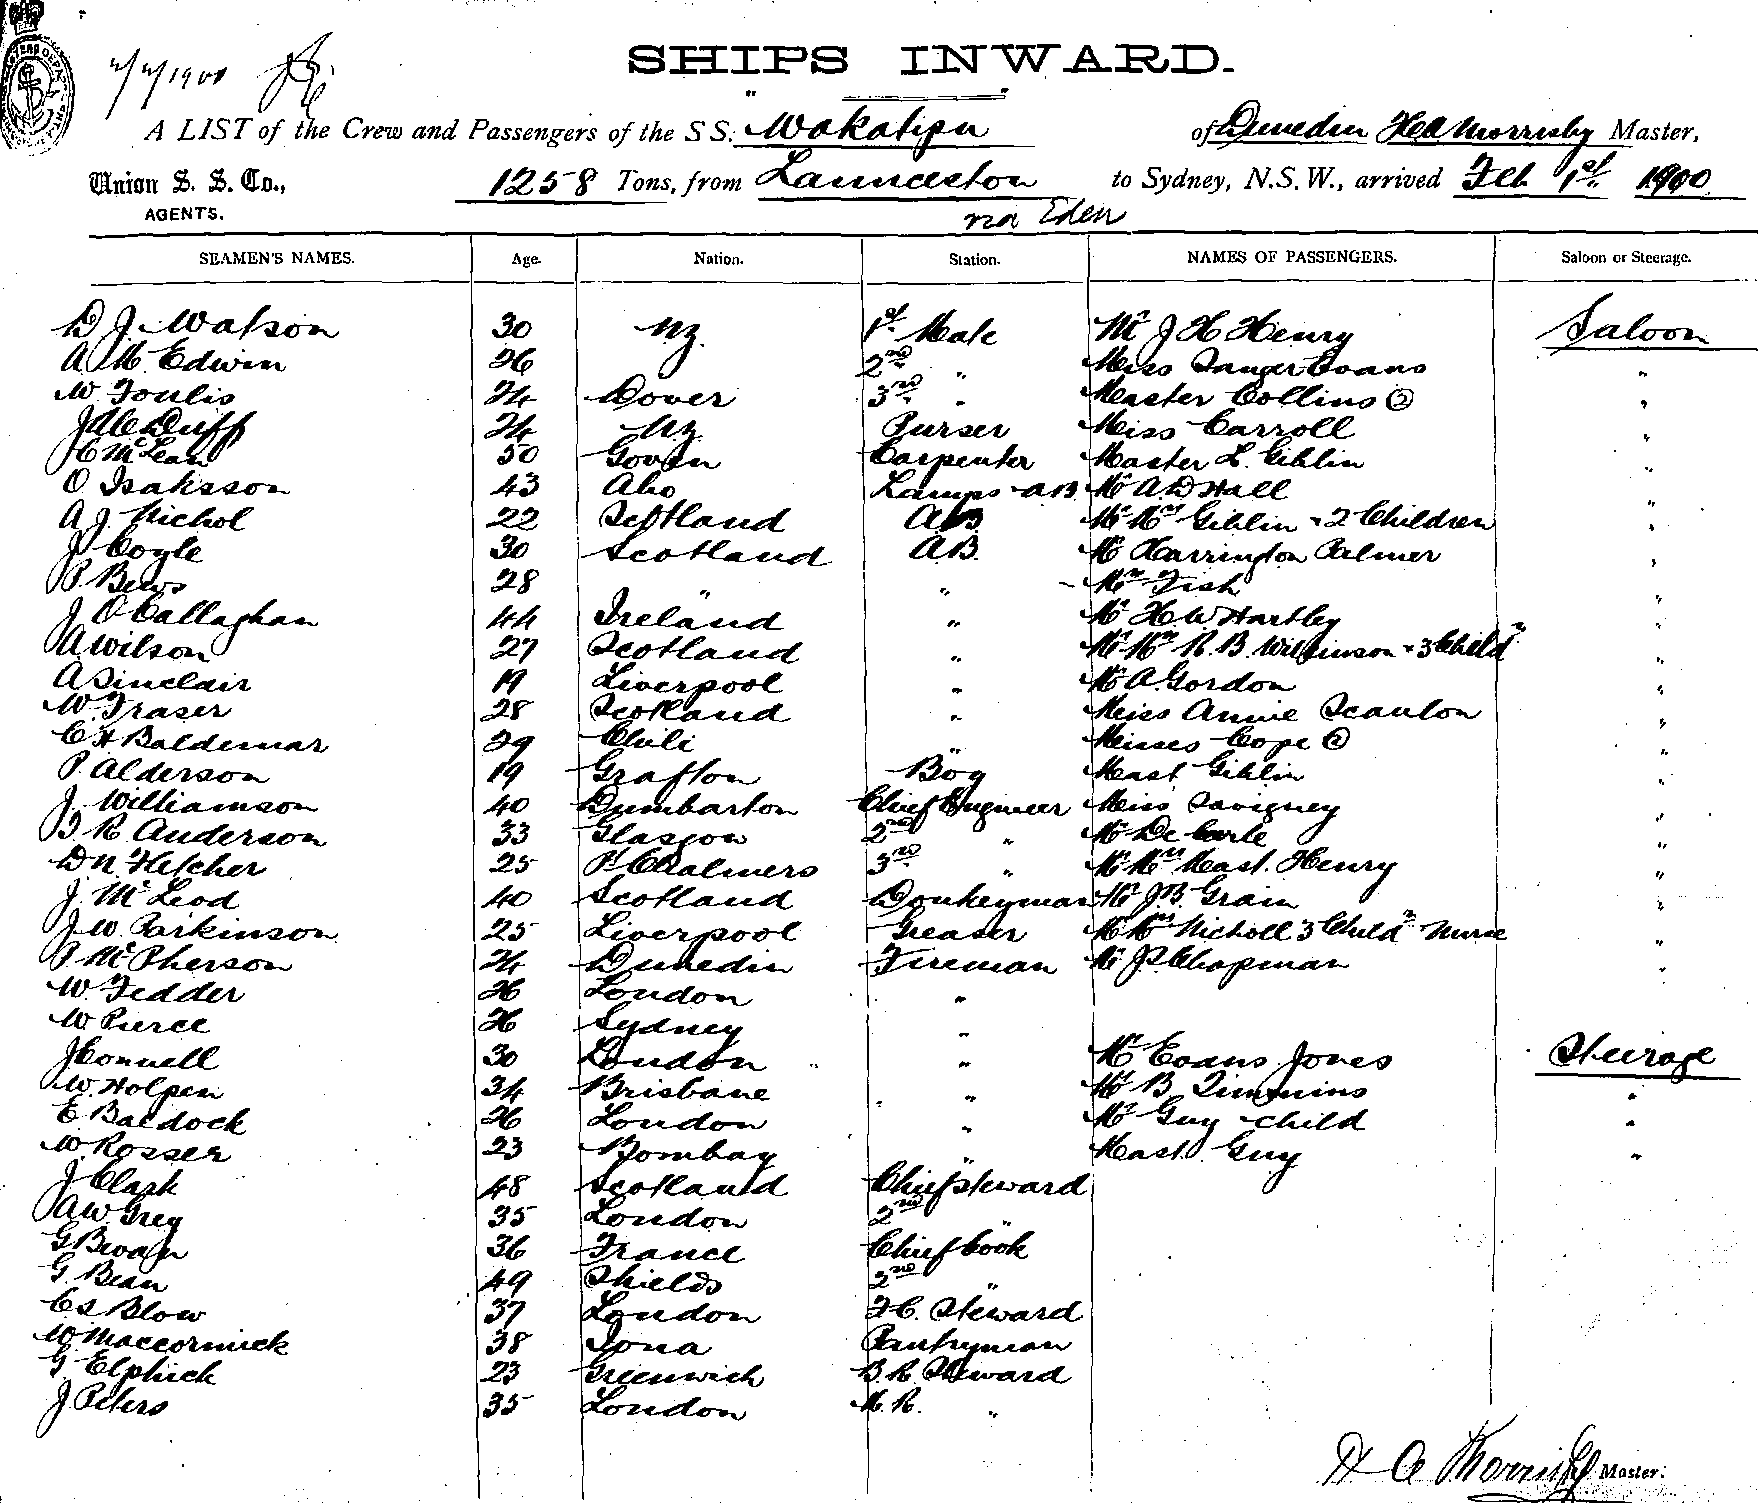 2/2/1900
SHIPS INWARD.
A LIST of the Crew and Passengers of the S S. "Wakatipu" of Dunedin H A Morrisby Master,
Union S. S. Co., AGENTS. 1258 Tons, from Launceston to Sydney, N.S.W., arrived Feb 1st 1900
via Eden
SEAMEN'S NAMES. Age. Nation. Station. NAMES OF PASSENGERS. Saloon or Steerage.
D J. Watson 30 NZ. 1st Mate Mr J H Henry Saloon
A M Edwin 26 2nd " Miss Evans "
W. Foulis 24 Dover 3rd " Master Collins (2) "
J Duff 24 NZ Purser Miss Carroll "
J C McLean 50 Govan Carpenter Master L. Giblin "
O Isaksson 43 Abo Lamps & AB Mr A D Hall "
A J. Nichol 22 Scotland AB Mr Mrs Giblin & 2 Children "
J Coyle 30 Scotland AB. Mr Harrington Palmer "
P. Bews 28 " " Mrs Fish "
J O'Callaghan 44 Ireland " Mr H W Hartley "
A Wilson 27 Scotland " Mr Mrs R. B. Wilkinson & 3 Childn "
A Sinclair 19 Liverpool " Mr A. Gordon "
W. Fraser 28 Scotland " Miss Annie Scanlon "
C H Baldemar 29 Chili " Misses Cope (2) "
P. Alderson 19 Grafton Boy Mast Giblin "
J. Williamson 40 Dumbarton Chief Engineer Miss Savigney "
R Anderson 33 Glasgow 2nd " Mr "
D N Fletcher 25 Pt Chalmers 3rd " Mr Mrs Mast. Henry "
J. McLeod 40 Scotland Donkeyman Mr J. B. Grain "
J. W. Parkinson 25 Liverpool Greaser Mr Mrs Nicholl 3 Childn Nurse "
P McPherson 24 Dunedin Fireman Mr J P. Chapman "
W. Fedder 26 London "
W Pierce 26 Sydney "
J Connell 30 London " Mr Evans Jones Steerage
W. Holpen 34 Brisbane " Mr B Timmins "
E Baldock 26 London " Mrs Guy & child "
W Rosser 23 Bombay " Mast. Guy "
J Clark 48 Scotland Chief Steward
A W Grey 35 London 2nd "
G 36 France Chief Cook
G. Bean 49 Shields 2nd "
C S Blow 37 London F C. Steward
W. Maccormick 38 Iona Pantryman
G Elphick 23 Greenwich B. R. Steward
J. Peters 35 London M. R. "
H A Morrisby Master.